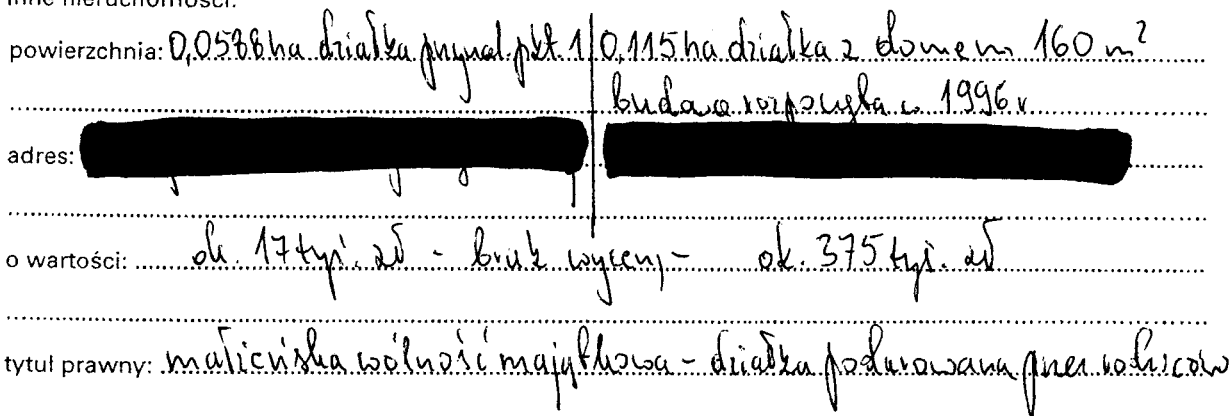 Inne nieruchomości:
powierzchnia: 0,0588 ha działka przynal. pkt. 1 | 0,115 ha działka z domem 160 m²
budowa rozpoczęta w 1996 r
adres:
o wartości: ok. 17 tyś. zł - brak wyceny - ok. 375 tyś. zł
tytuł prawny: małżeńska wólność majątkowa - działka podarowana przez rodziców